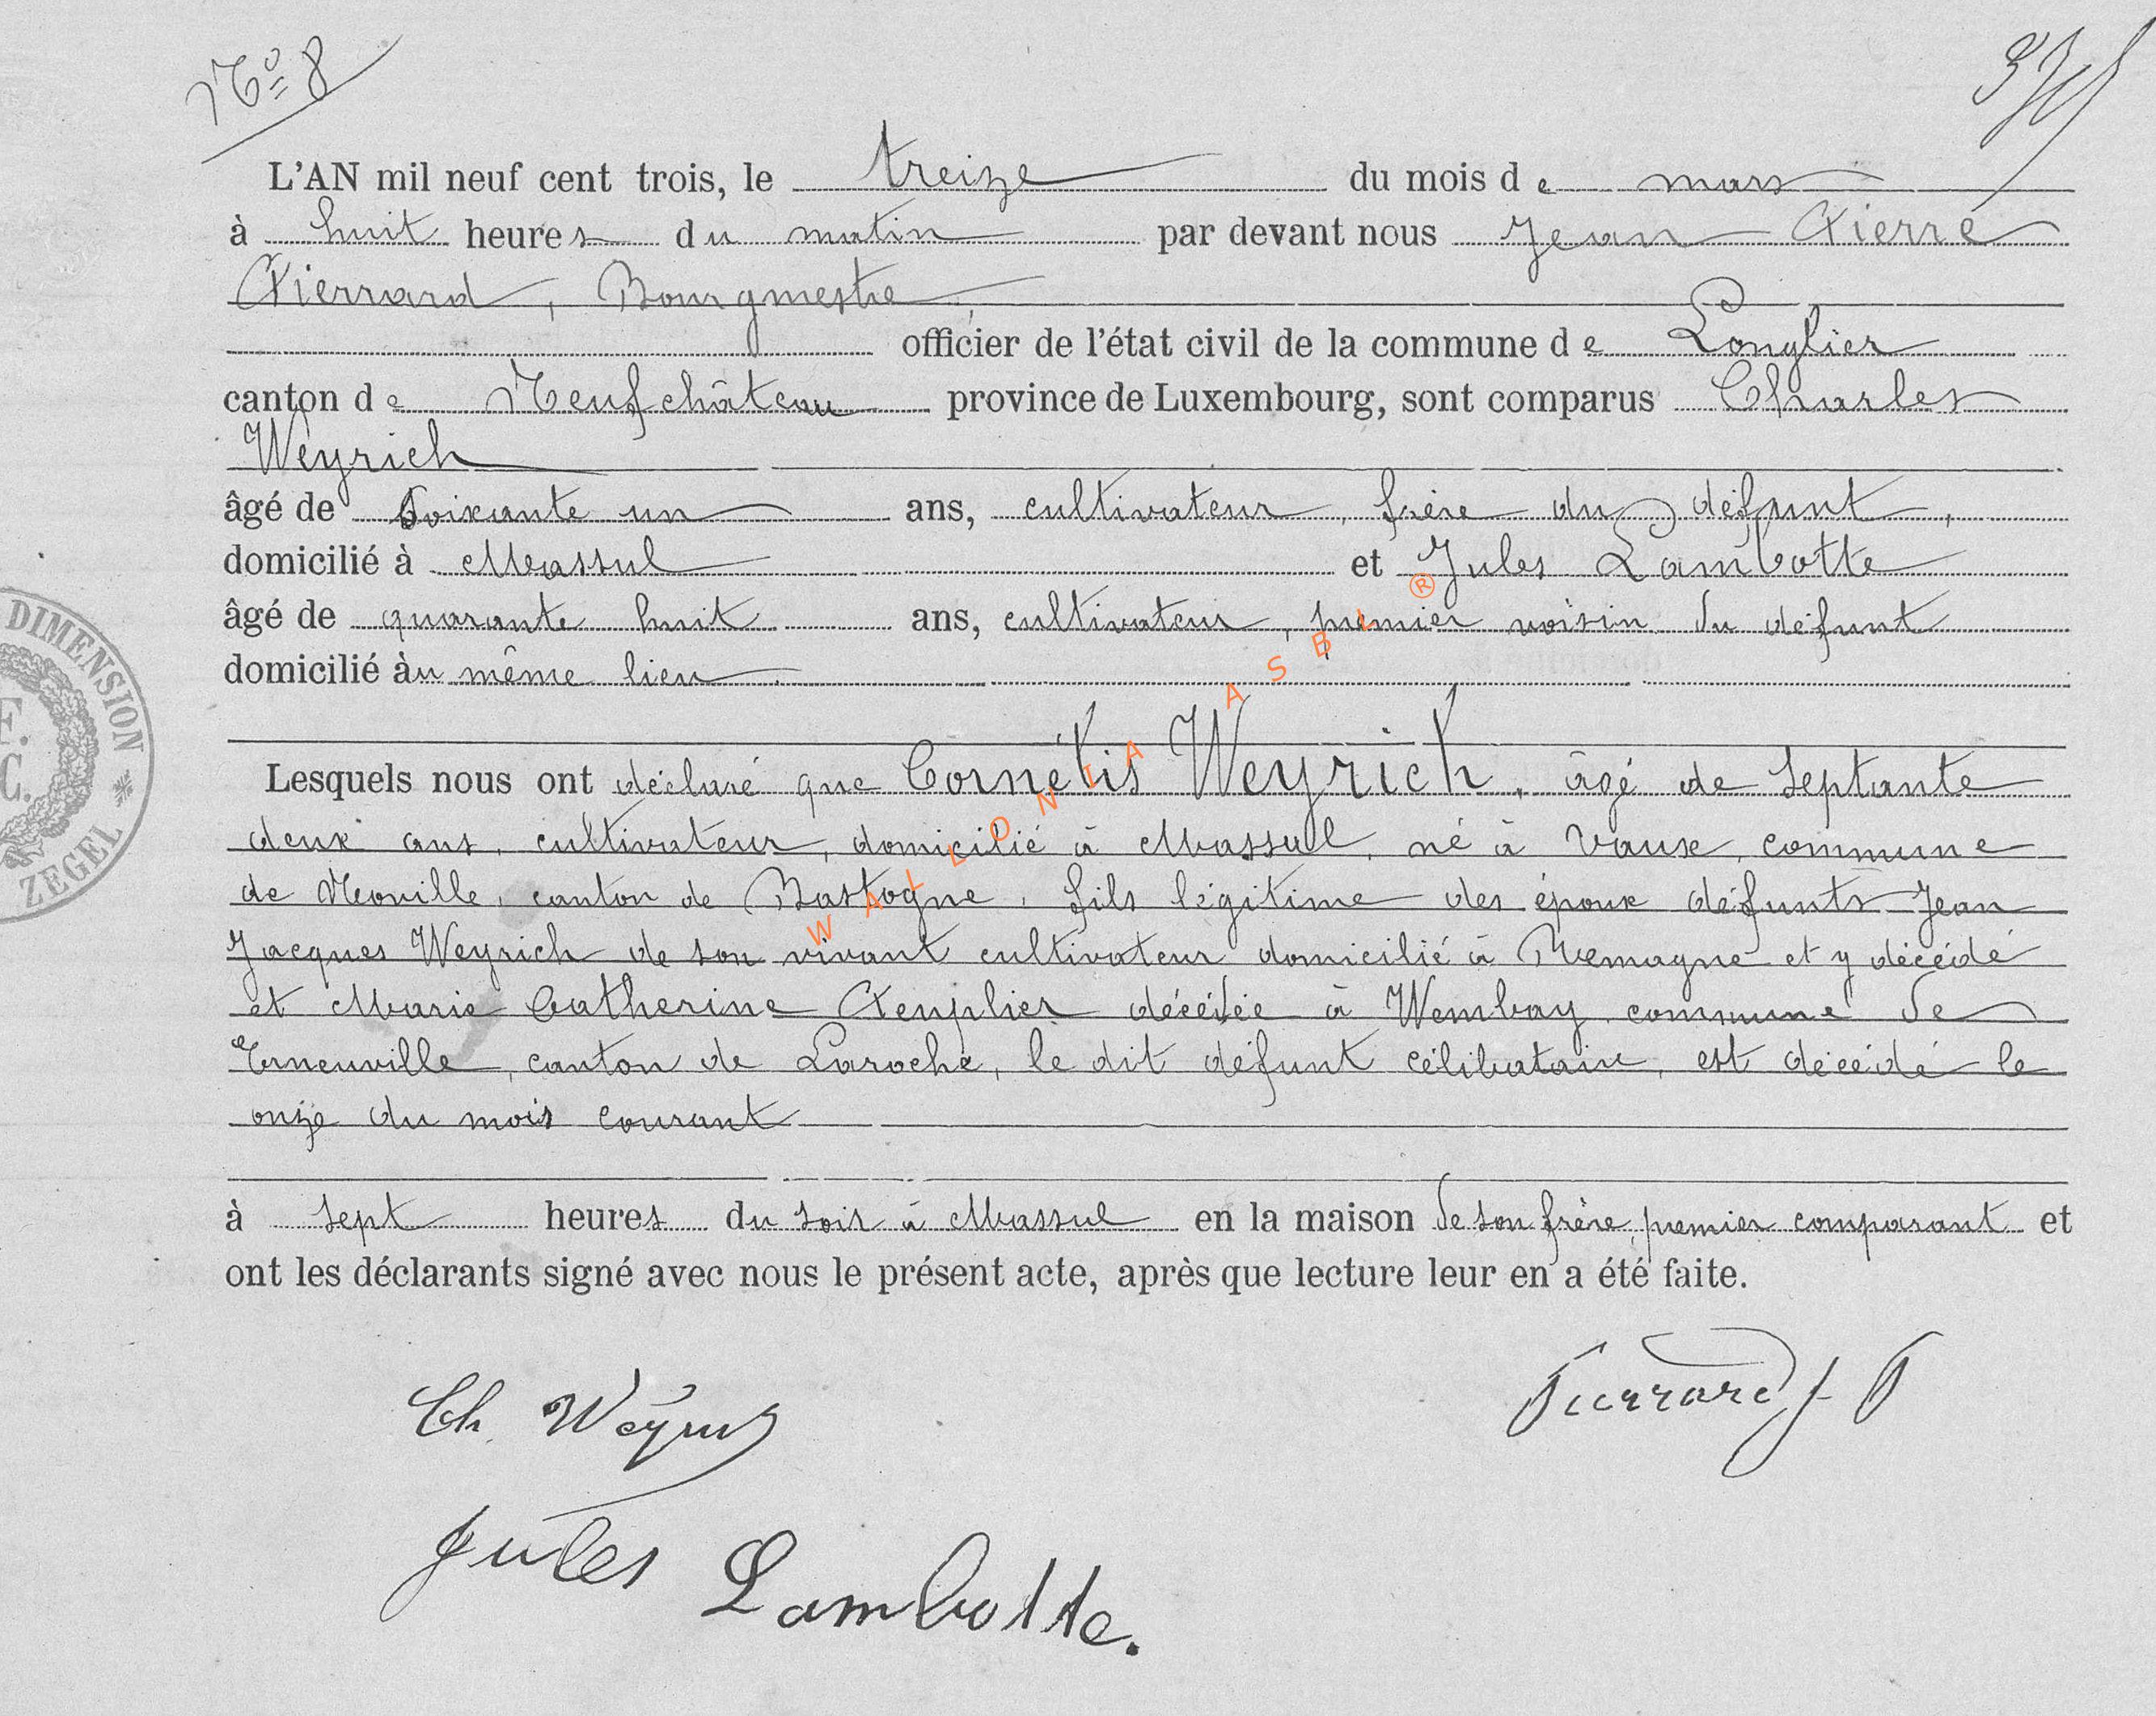 No 8
L'AN mil neuf cent trois, le treize du mois de mars
à huit heures du matin par devant nous Jean Pierre
Pierrard, Bourgmestre
officier de l'état civil de la commune de Longlier
canton de Neufchâteau province de Luxembourg, sont comparus Charles
Weyrich
âgé de Soixante un ans, cultivateur, frère du défunt,
domicilié à Massul et Jules Lambotte
âgé de quarante huit ans, cultivateur, premier voisin du défunt
domicilié au même lieu.
Lesquels nous ont déclaré que Cornélis Weyrich, âgé de septante
deux ans, cultivateur, domicilié à Massul, né à Vaux, commune
de Noville, canton de Bastogne, fils légitime des époux défunts Jean
Jacques Weyrich de son vivant cultivateur domicilié à Remagne et y décédé
et Marie Catherine décédée à Wembay commune de
Erneuville, canton de Laroche, le dit défunt célibataire, est décédé le
onze du mois courant
à sept heures du soir à Massul en la maison de son frère, premier comparant et
ont les déclarants signé avec nous le présent acte, après que lecture leur en a été faite.
Ch. Weyrich
Pierrard J P
Jules Lambotte.
DIMENSION
ZEGEL
WALLONIA ASBL ®